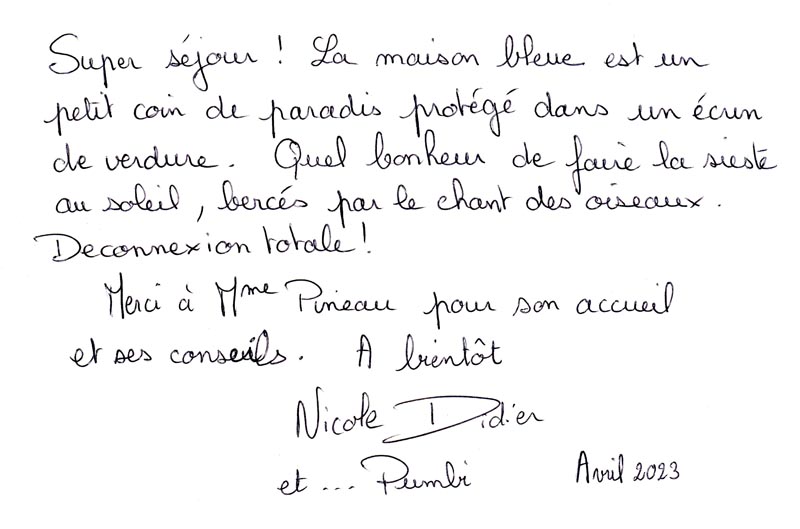 Super séjour ! La maison bleue est un
petit coin de paradis protégé dans un écrin
de verdure. Quel bonheur de faire la sieste
au soleil, bercés par le chant des oiseaux.
Deconnexion totale !
Merci à Mme Pineau pour son accueil
et ses conseils. A bientôt
Nicole Didier
et ... Pumbi
Avril 2023